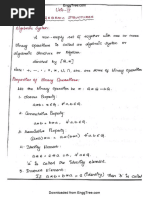 EnggTree.com
UNIT-
ALGEBRAIC STRUCTURES
Algebraic System
A non-empty set G together with one or more
binary operations is called an algebraic system or
algebraic structure or Algebra.
denoted by [G, *]
Note: +, -, ., *, ∪, ∩ etc are some of binary operations.
Properties of Binary Operations:
Let the binary operation be * : G × G → G.
1. Closure Property:
a * b ∈ G, ∀ a, b ∈ G.
2. Commutative Property:
a * b = b * a, ∀ a, b ∈ G.
3. Associative Property:
4. Identity Element:
'e' is called the identity element.
5. Inverse Element:
If a * b = b * a = e (Identity) then 'b' is called
Downloaded from EnggTree.com